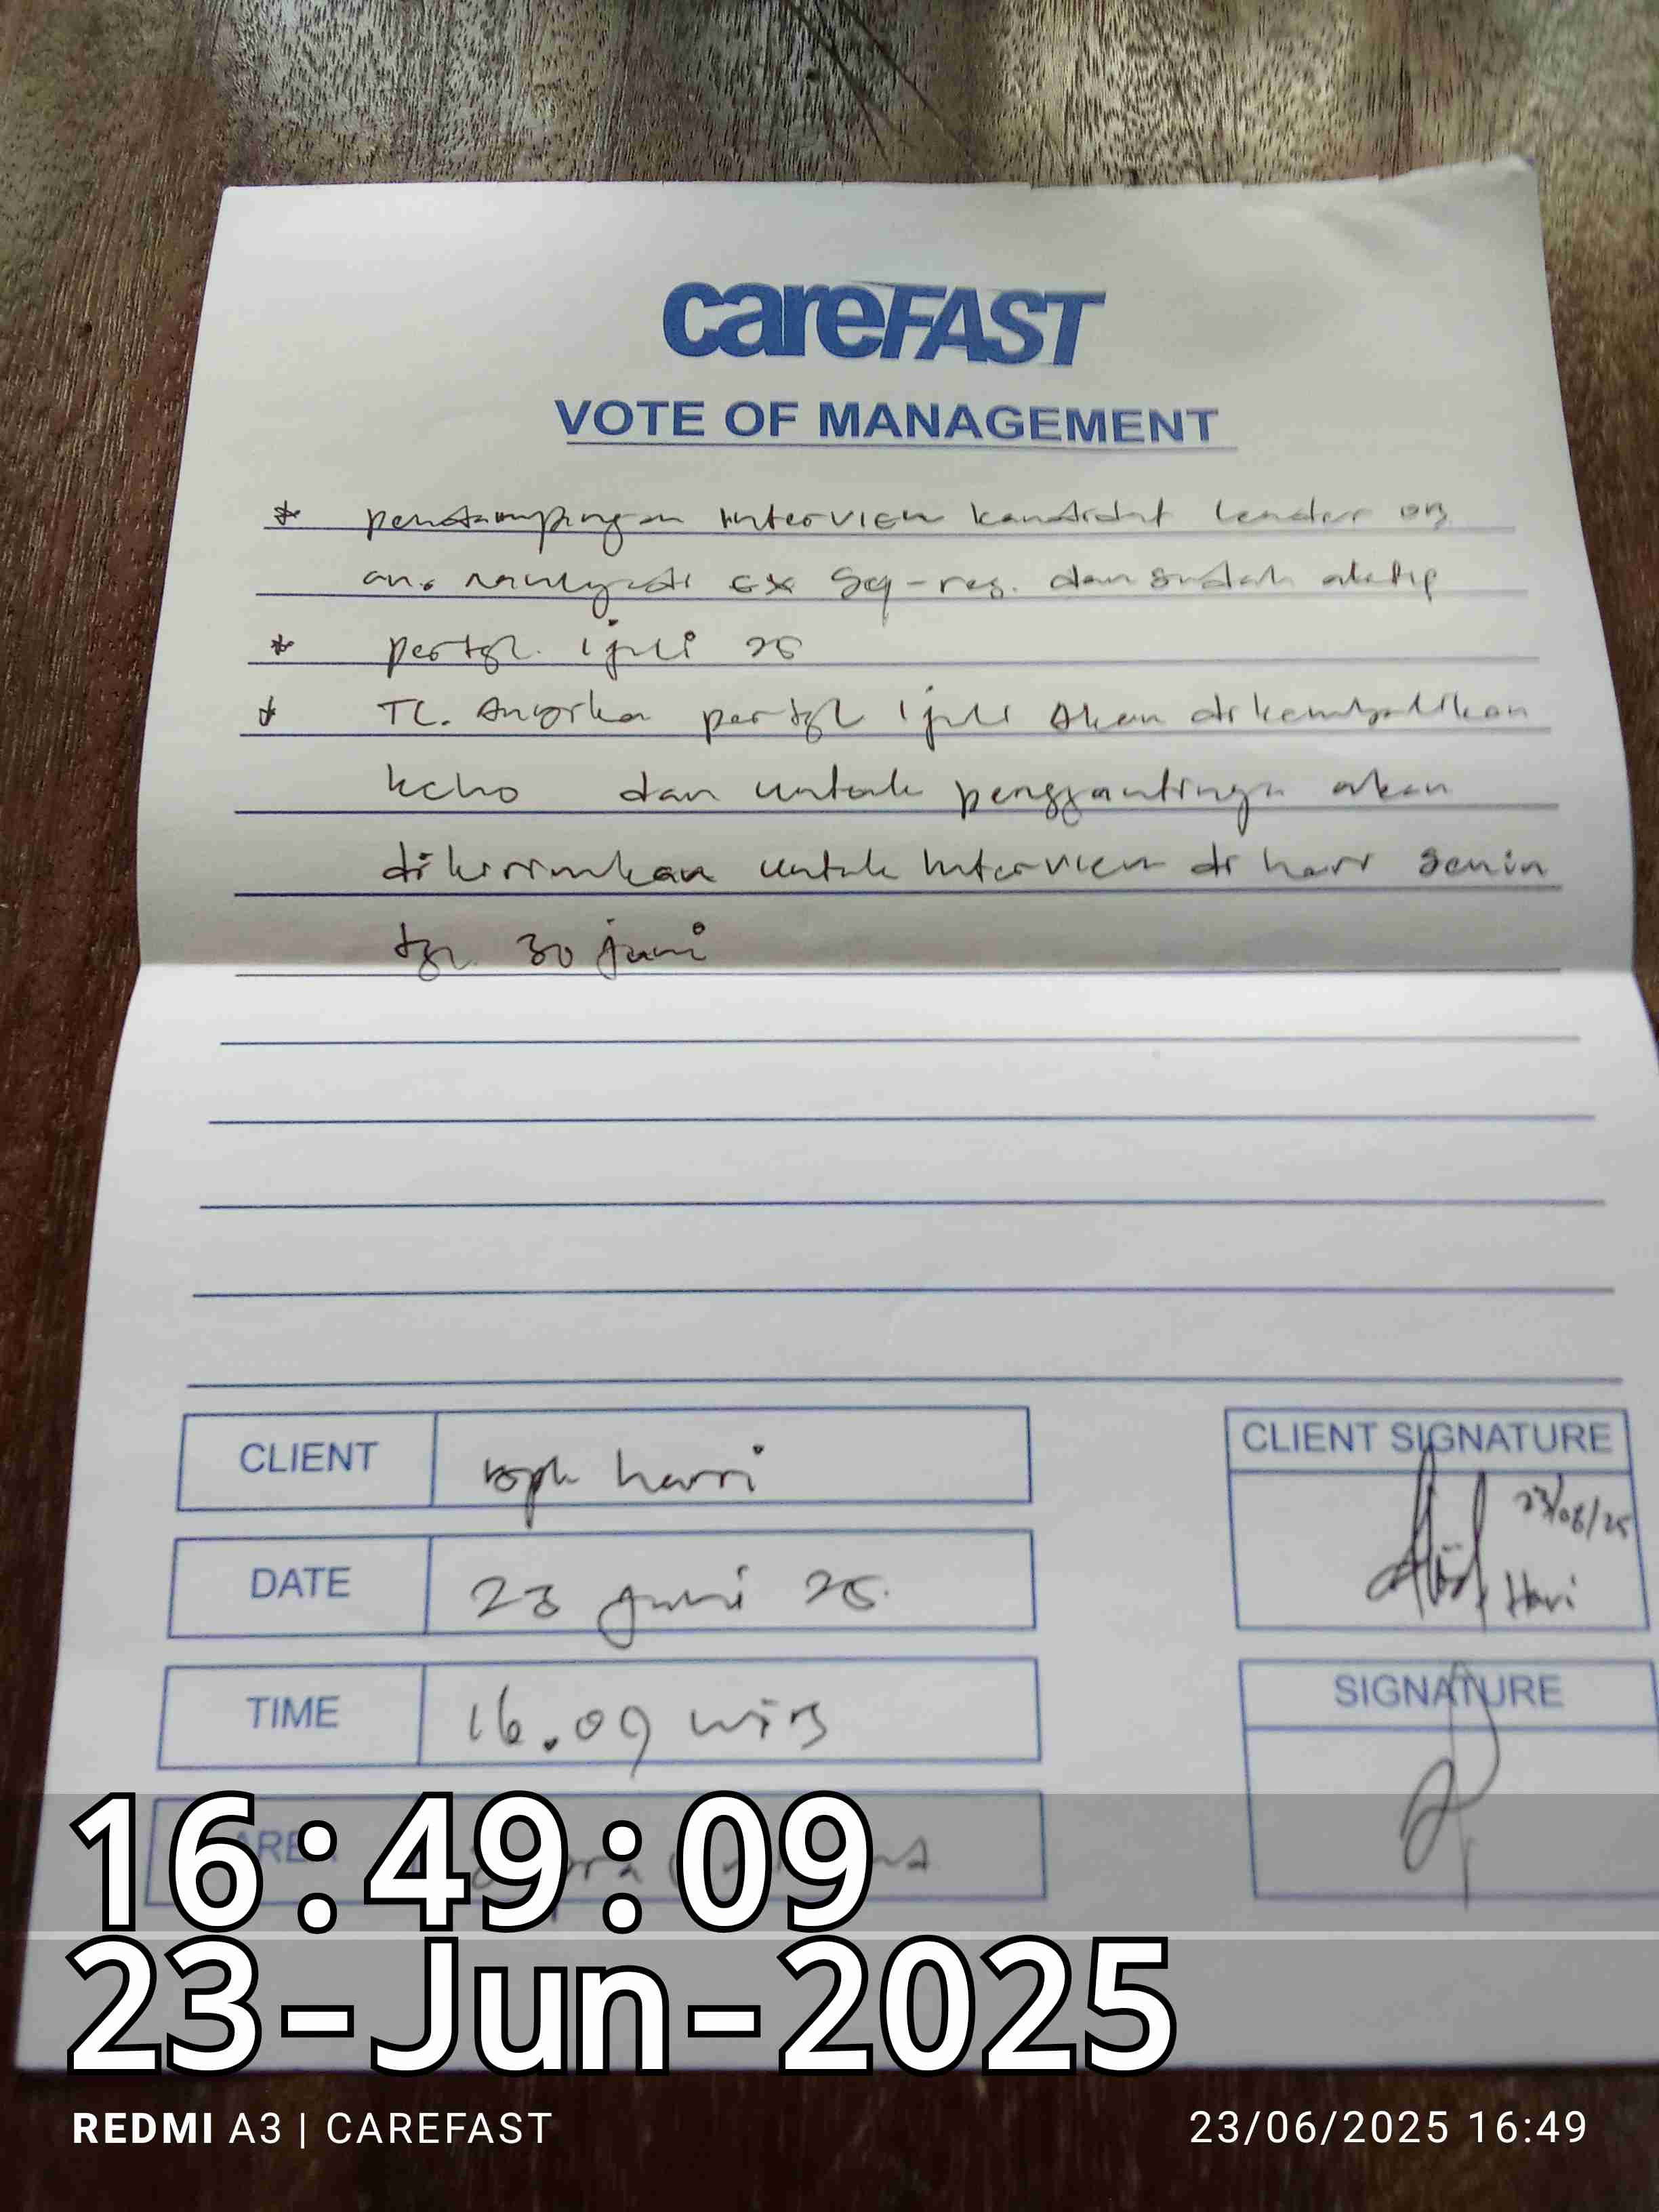 careFAST
VOTE OF MANAGEMENT
* pendampingan interview kandidat leader
an. ex Sq-res. dan sudah aktip
* pertgl. 1 juli 25
* TL. pertgl 1 juli Akan dikembalikan
keho dan untuk penggantinya akan
dikirimkan untuk interview di hari senin
tgl. 30 juni
CLIENT bpk harri
CLIENT SIGNATURE
23/06/25
Hari
DATE 23 juni 25.
TIME 16.09 WIB
SIGNATURE
16:49:09
23-Jun-2025
REDMI A3 | CAREFAST
23/06/2025 16:49